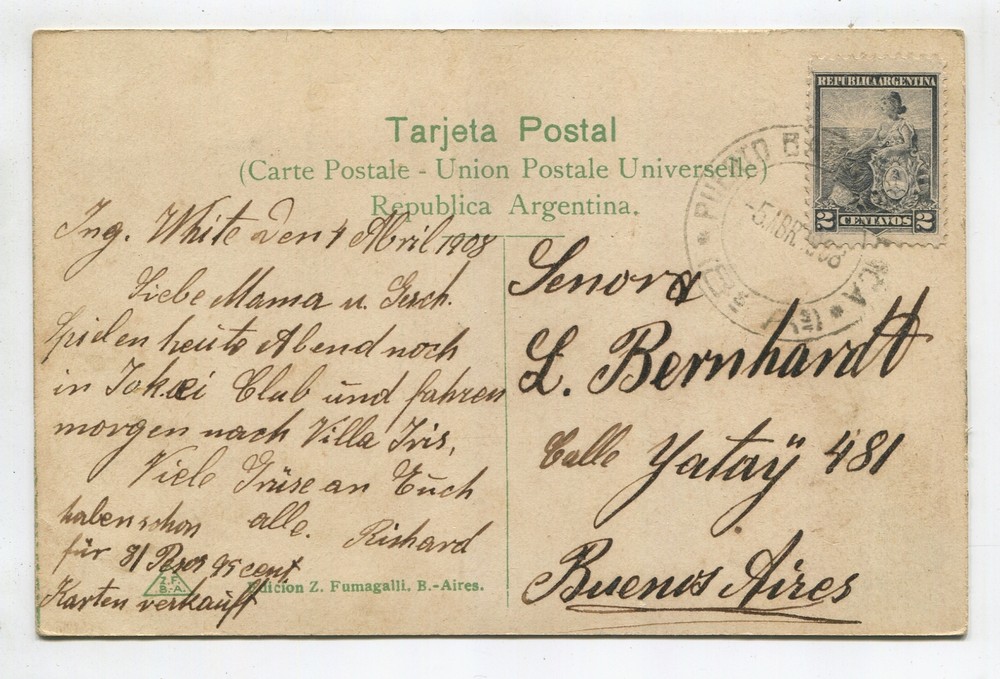 REPUBLICA ARGENTINA
2 CENTAVOS 2
PUERTO B
-5.ABR.1908
Tarjeta Postal
(Carte Postale - Union Postale Universelle)
Republica Argentina.
Ing. White den 4 Abril 1908
Liebe Mama u. Gesch.
spielen heute Abend noch
in Jokei Club und fahren
morgen nach Villa Iris,
Viele Grüse an Euch
alle. Richard
haben schon
für 81 Pesos 95 cent
Karten verkauft
Senora
L. Bernhardt
Calle Yataÿ 481
Buenos Aires
Z.F.
B.A.
Edicion Z. Fumagalli. B.-Aires.